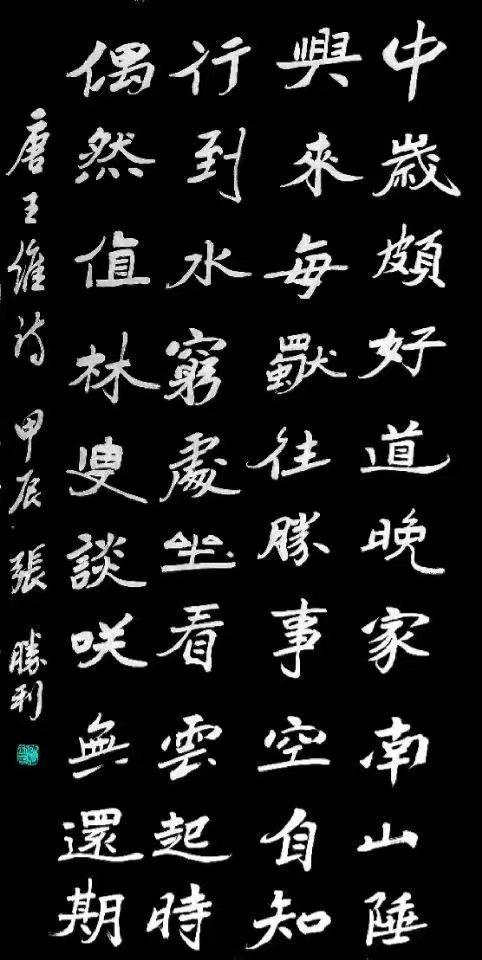 中歲頗好道晚家南山陲
興來每獨往勝事空自知
行到水窮處坐看雲起時
偶然值林叟談咲無還期
唐王維诗 甲辰 張勝利